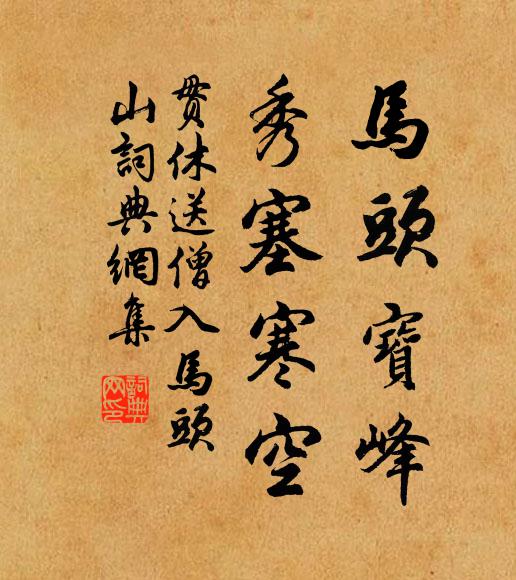 馬頭寶峰
秀塞寒空
貫休送僧入馬頭
山詞典網集
詞典
网印